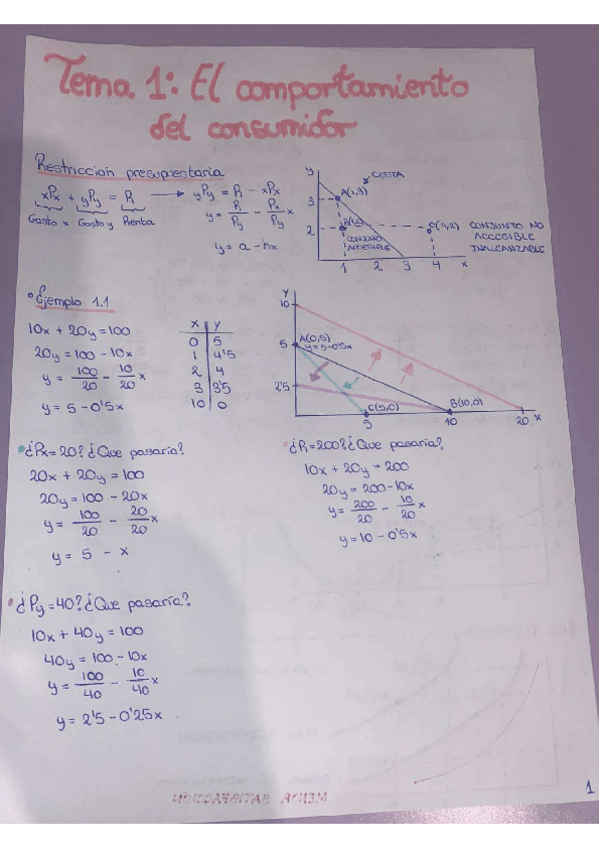 Tema 1: El comportamiento
del consumidor
Restricción presupuestaria
xPx + yPy = R → yPy = R - xPx
Gasto x Gasto y Renta
y = R/Py - Px/Py x
y = a - bx
y
3
2
1 2 3 4 x
A(1,3)
CESTA
CONJUNTO
ACCESIBLE
CONJUNTO NO
ACCESIBLE
INALCANZABLE
Ejemplo 1.1
10x + 20y = 100
20y = 100 - 10x
y = 100/20 - 10/20 x
y = 5 - 0'5x
x y
0 5
1 4'5
2 4
3 3'5
10 0
y
10
5
2'5
A(0,5)
y = 5-0'5x
C(5,0)
B(10,0)
5 10 20 x
¿Px=20? ¿Que pasaría?
20x + 20y = 100
20y = 100 - 20x
y = 100/20 - 20/20 x
y = 5 - x
¿R=200? ¿Que pasaría?
10x + 20y = 200
20y = 200-10x
y = 200/20 - 10/20 x
y = 10 - 0'5x
¿Py=40? ¿Que pasaría?
10x + 40y = 100
40y = 100 - 10x
y = 100/40 - 10/40 x
y = 2'5 - 0'25x
1